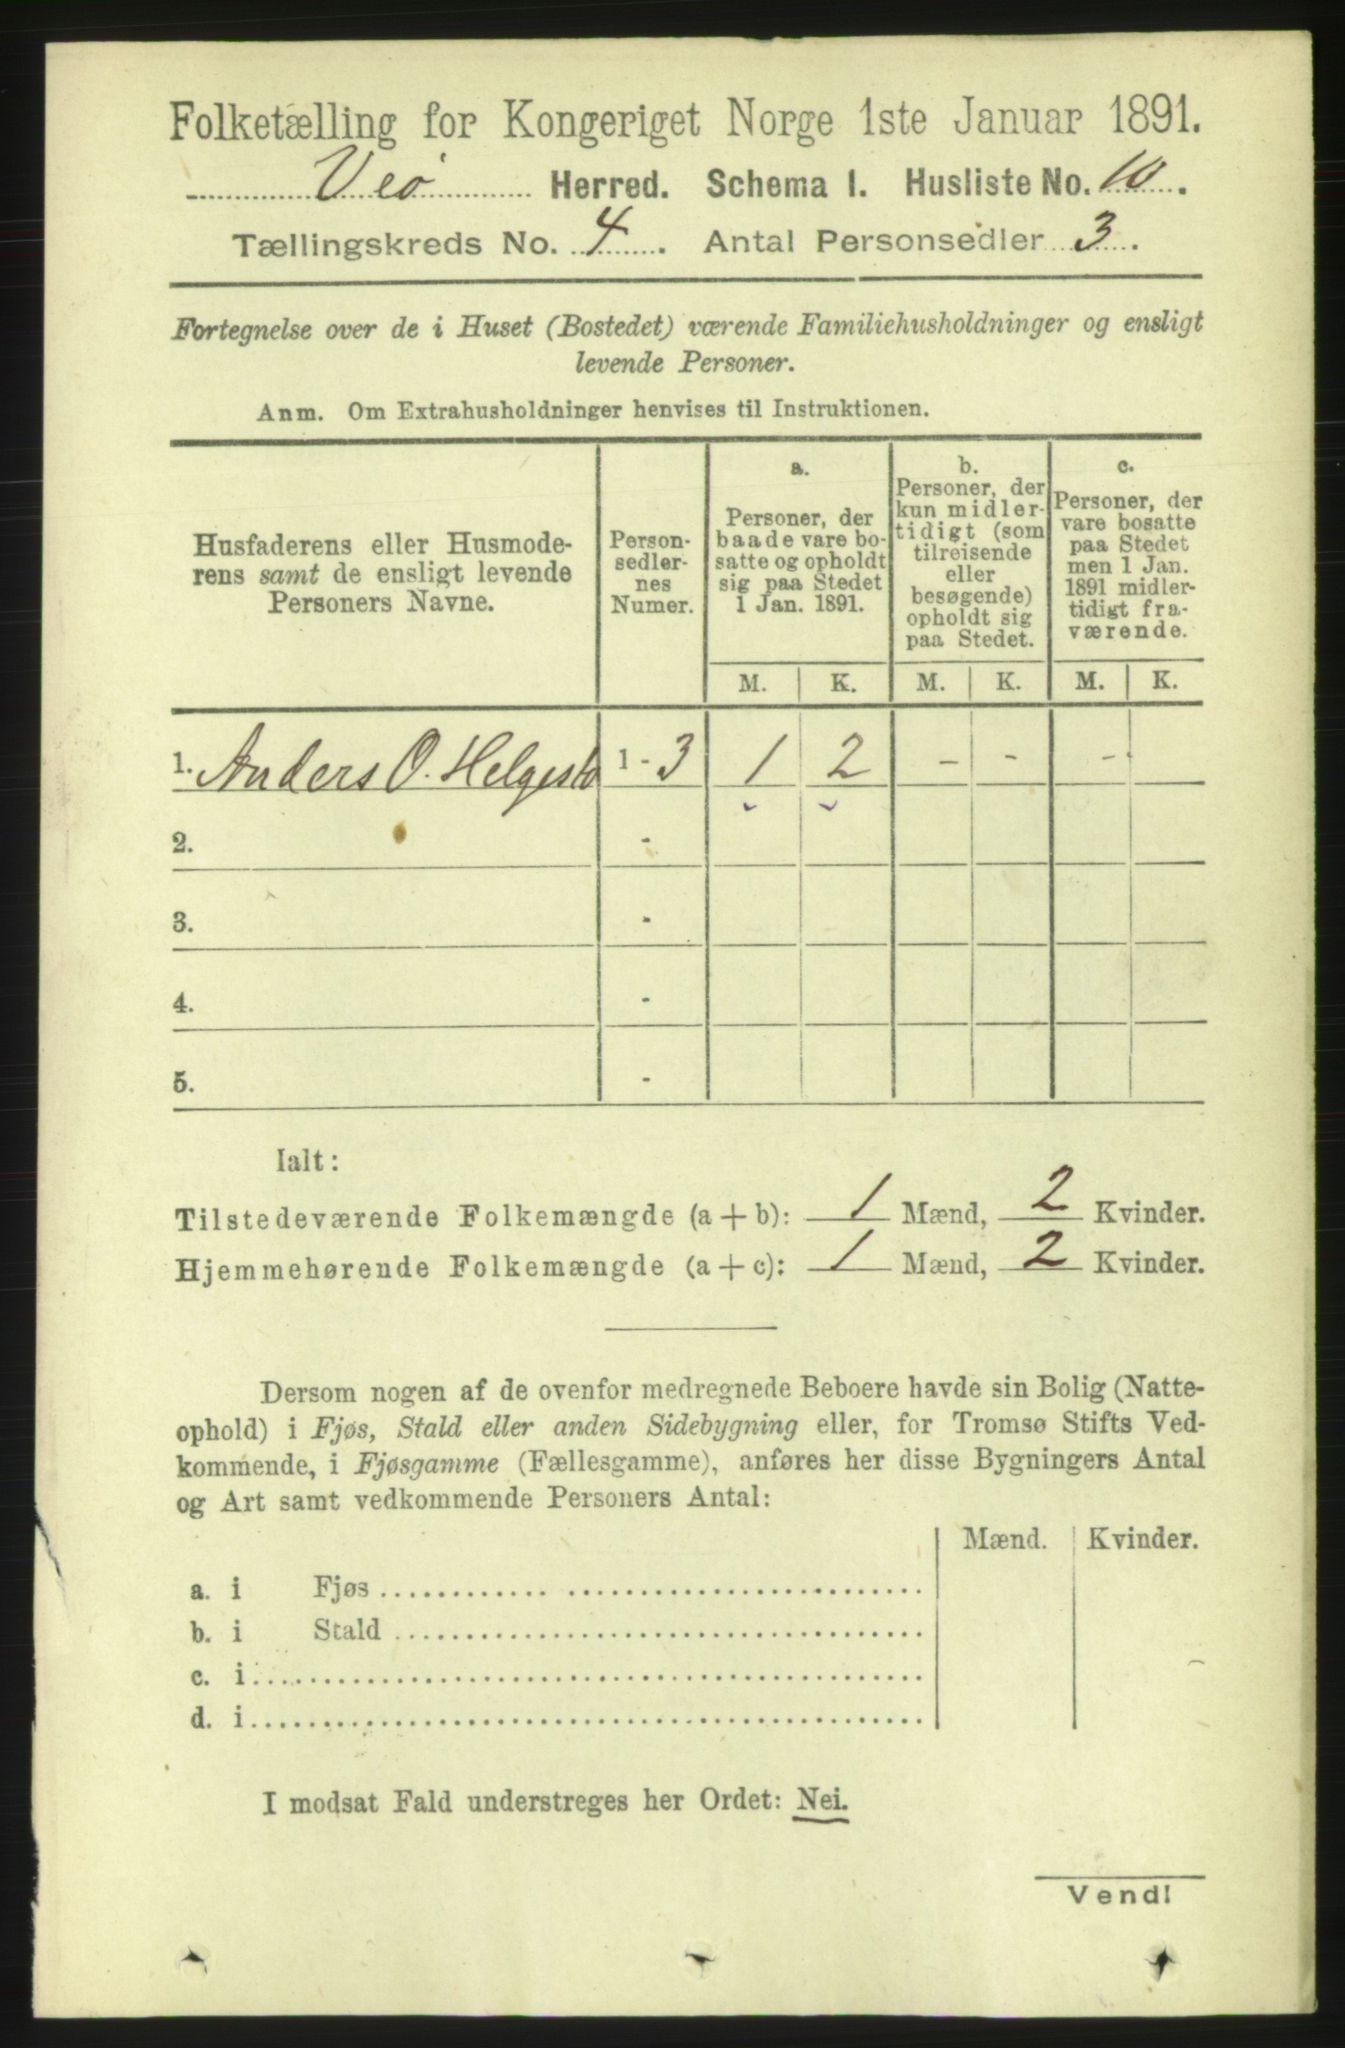 Folketælling for Kongeriget Norge 1ste Januar 1891.
Veø Herred. Schema I. Husliste No. 10.
Tællingskreds No. 4. Antal Personsedler 3.
Fortegnelse over de i Huset (Bostedet) værende Familiehusholdninger og ensligt
levende Personer.
Anm. Om Extrahusholdninger henvises til Instruktionen.
Husfaderens eller Husmode-
rens samt de ensligt levende
Personers Navne.
Person-
sedler-
nes
Numer.
a.
Personer, der
baade vare bo-
satte og opholdt
sig paa Stedet
1 Jan. 1891.
b.
Personer, der
kun midler-
tidigt (som
tilreisende
eller
besøgende)
opholdt sig
paa Stedet.
c.
Personer, der
vare bosatte
paa Stedet
men 1 Jan.
1891 midler-
tidigt fra-
værende.
M. K. M. K. M. K.
1. Anders O. Helgestø 1 - 3 1 2 - - -
2. -
3. -
4. -
5. -
Ialt:
Tilstedeværende Folkemængde (a + b): 1 Mænd, 2 Kvinder.
Hjemmehørende Folkemængde (a + c): 1 Mænd, 2 Kvinder.
Dersom nogen af de ovenfor medregnede Beboere havde sin Bolig (Natte-
ophold) i Fjøs, Stald eller anden Sidebygning eller, for Tromsø Stifts Ved-
kommende, i Fjøsgamme (Fællesgamme), anføres her disse Bygningers Antal
og Art samt vedkommende Personers Antal:
Mænd. Kvinder.
a. i Fjøs
b. i Stald
c. i
d. i
I modsat Fald understreges her Ordet: Nei.
Vend!